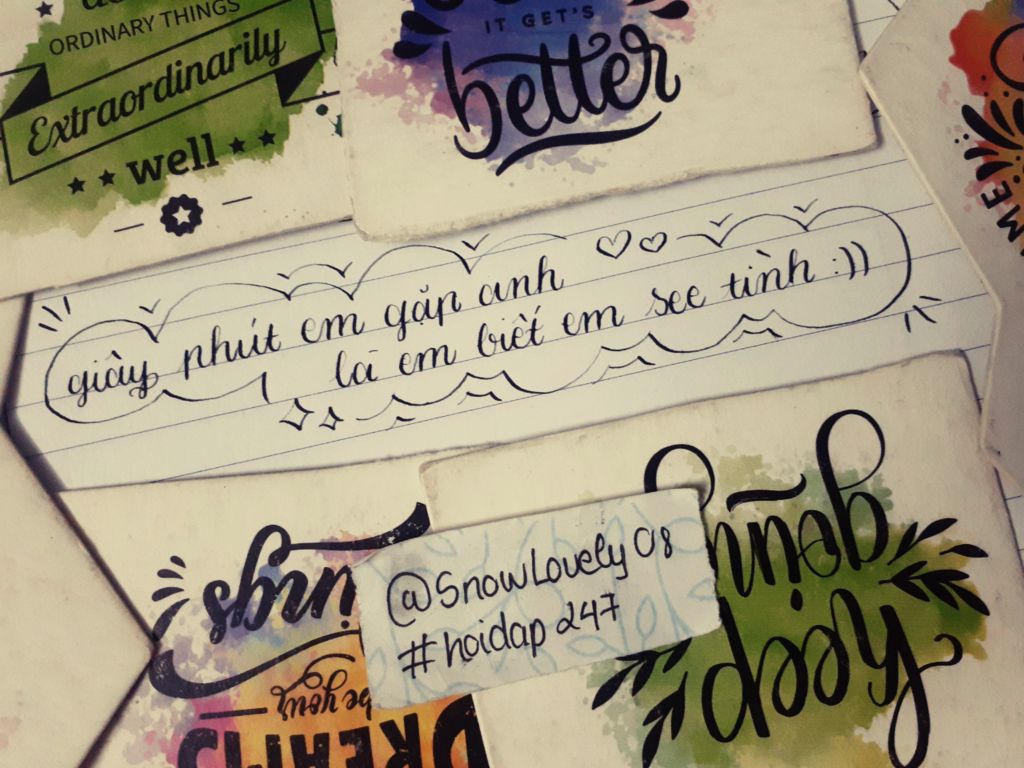 ORDINARY THINGS
Extraordinarily
well
IT GET'S
better
ME
giây phút em gặp anh
là em biết em see tình :))
@SnowLovely08
#hoidap247
wings
be your
DREAMS
keep
going